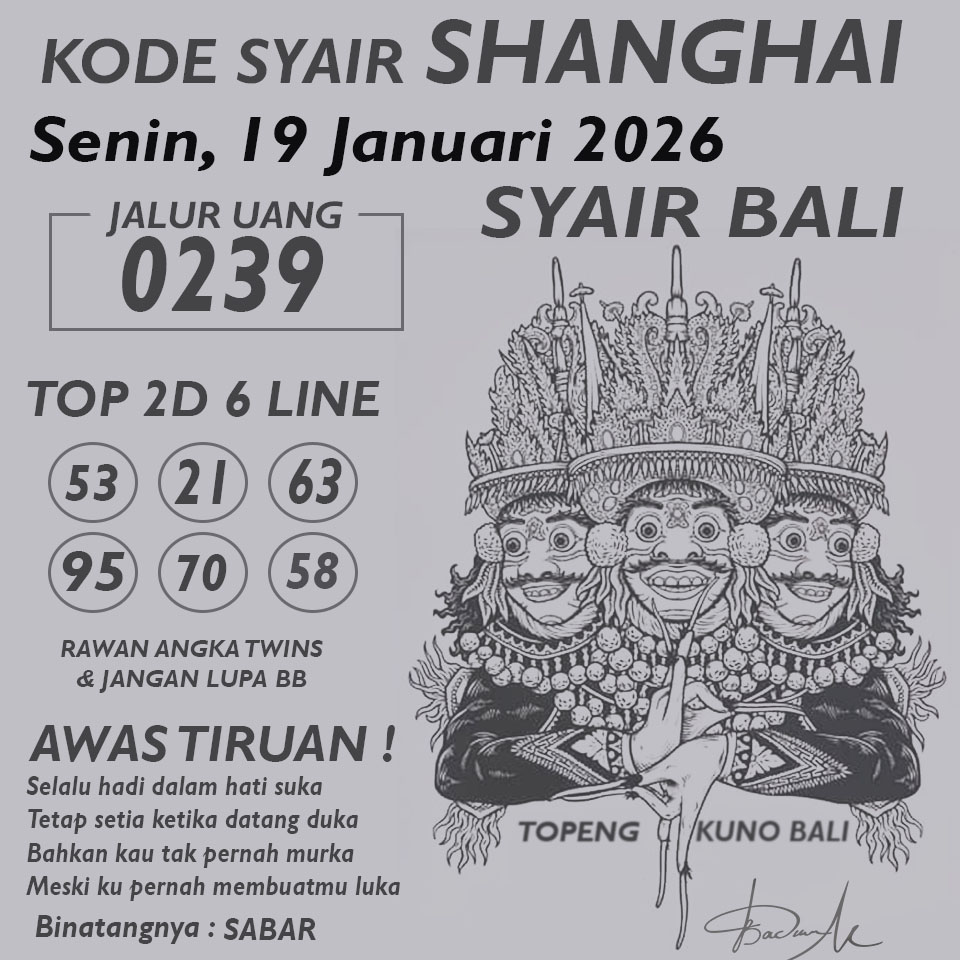 KODE SYAIR SHANGHAI
Senin, 19 Januari 2026
SYAIR BALI
JALUR UANG
0239
TOP 2D 6 LINE
53 21 63
95 70 58
RAWAN ANGKA TWINS
& JANGAN LUPA BB
AWAS TIRUAN !
Selalu hadi dalam hati suka
Tetap setia ketika datang duka
Bahkan kau tak pernah murka
Meski ku pernah membuatmu luka
Binatangnya : SABAR
TOPENG KUNO BALI